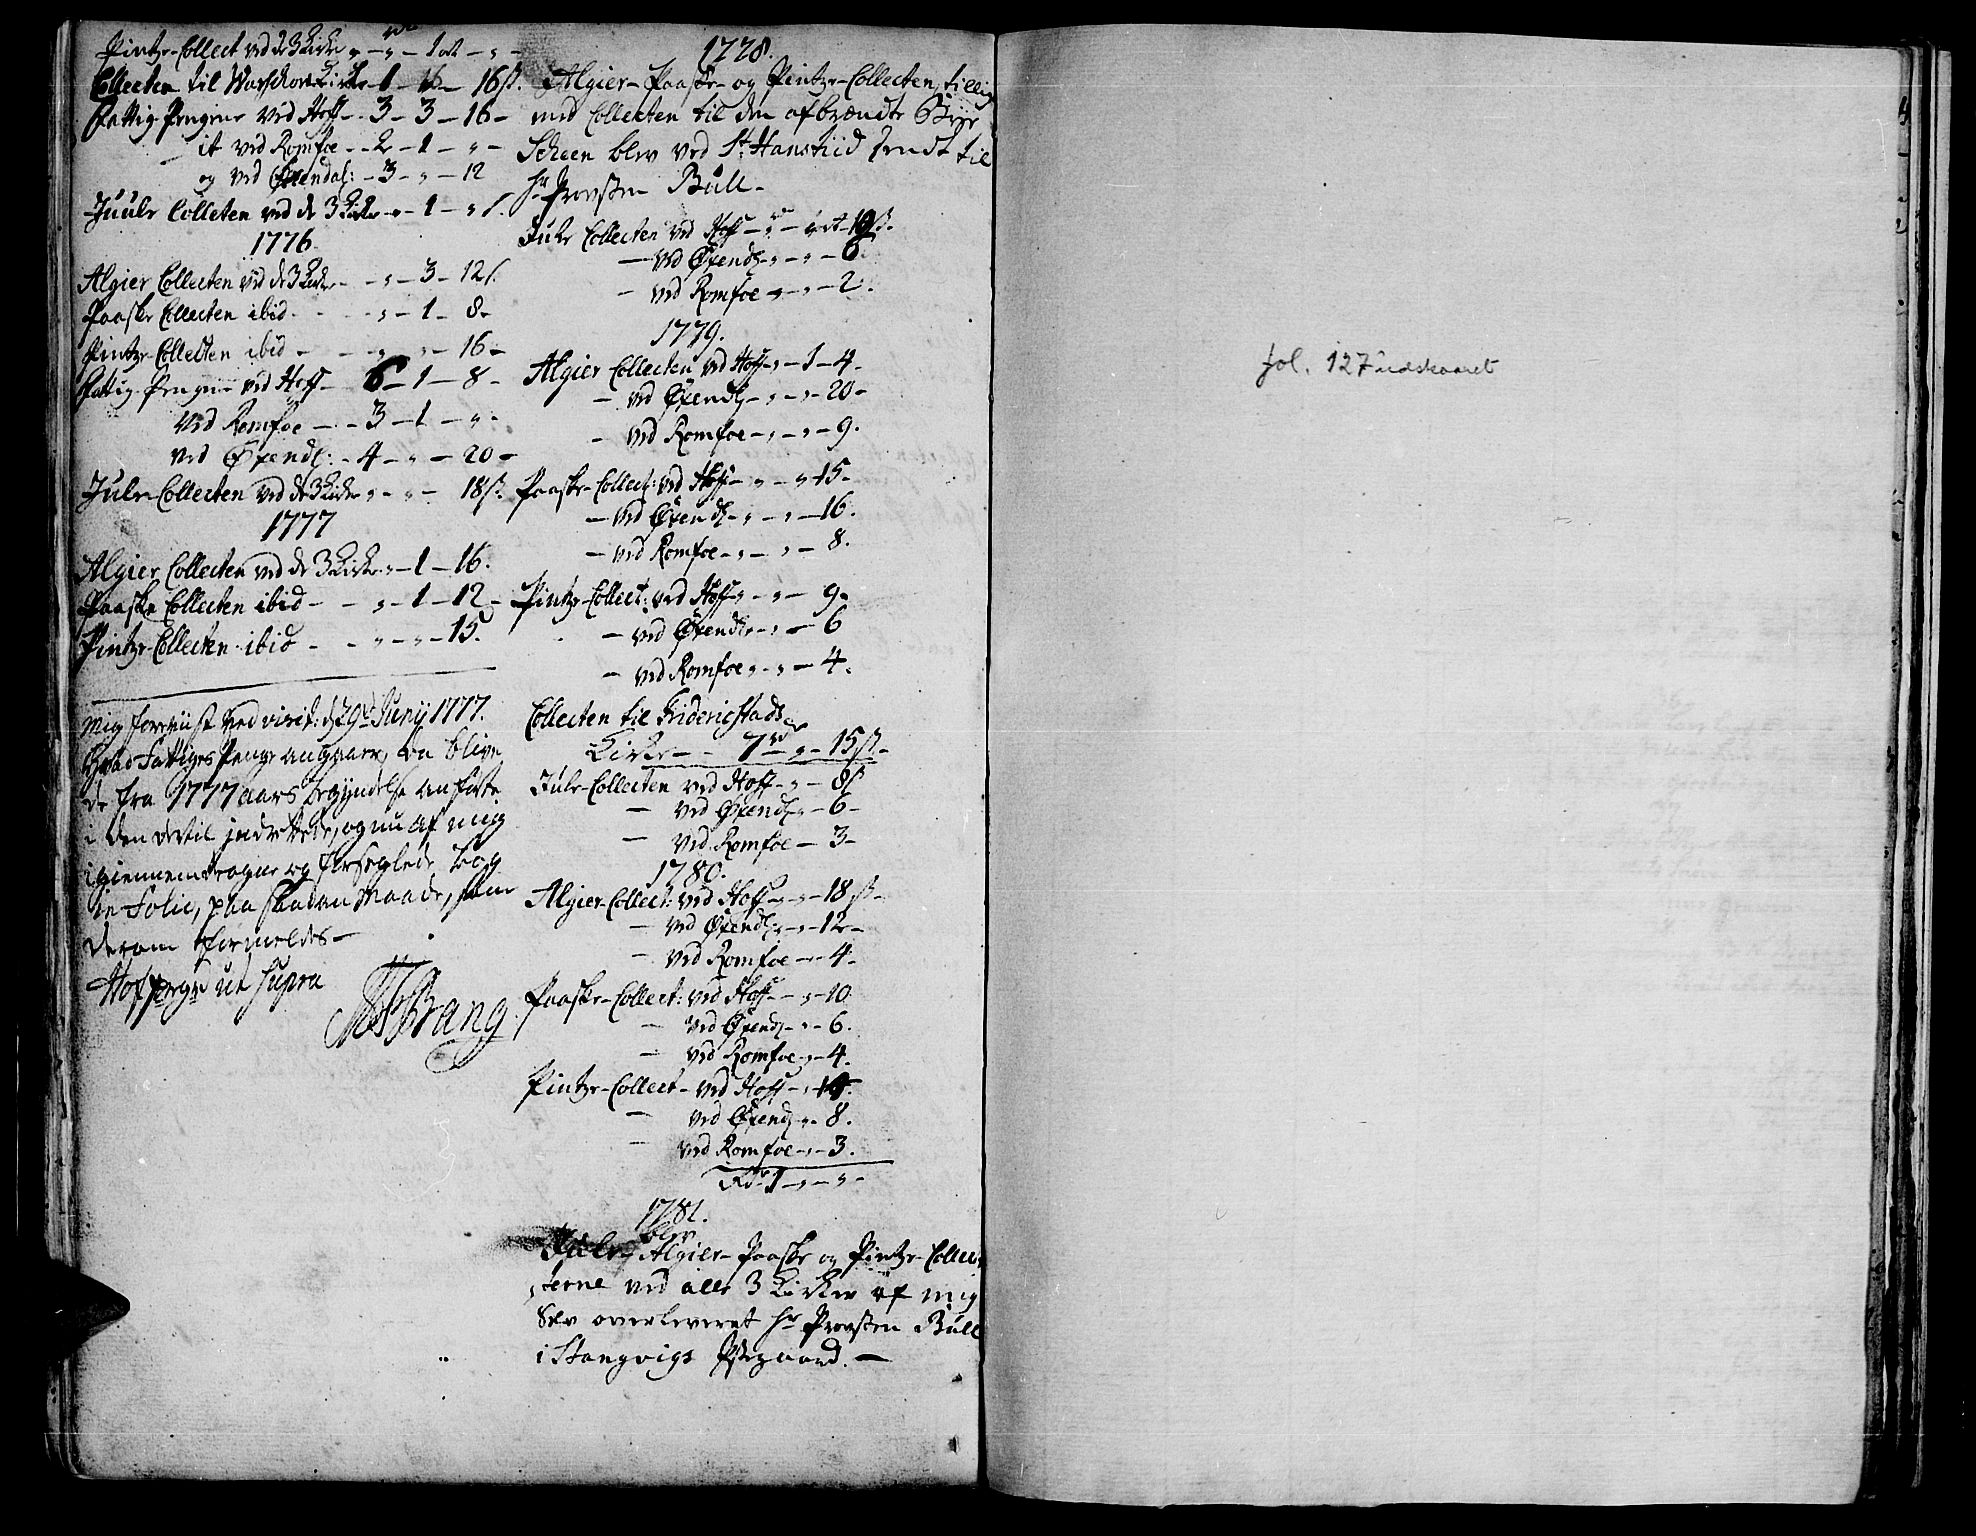 Pintze-Collect ved de 3 Kirker „ - 1 ort - „ -
Collecten til Warschou Kirke - 1 - „ - 16 s.
Fattig-Pengene ved Hoff - 3 - 3 - 16 -
it ved Romfoe - 2 - 1 - „ -
og ved Øxendal: - 3 - „ - 12
Juule Colleten ved de 3 Kirker - „ - 1 - „ s.
1776.
Algier Collecten ved de 3 Kirker - „ - 3 - 12 s.
Paaske Collecten ibid - „ - 1 - 8 -
Pintze-Collecten ibid - „ - „ - 16 -
Fattig-Pengene ved Hoff - 6 - 1 - 8 -
ved Romfoe - 3 - 1 - „ -
ved Øxendl: - 4 - „ - 20 -
Jule-Collecten ved de 3 Kirker „ - „ - 18 s.
1777
Algier Collecten ved de 3 Kirker „ - 1 - 16.
Paaske Collecten ibid - „ - 1 - 12 -
Pintze-Collecten ibid - „ - „ - 15.
Mig foreviist ved visit: d. 29de Junij 1777.
Hvad Fattiges Penge angaaer, da blive
de fra 1777 aars begyndelse anførte
i den dertil indrettede, og nu af mig
igiennemdragne og forseglede bog
in Folio, paa saadan Maade, som
derom formeldes -
Hof ut supra
Bang
1778.
Algier- Paaske- og Pintze-Collecten, tillig
med Collecten til den afbrændte Bye
Scheen blev ved St. Hanstiid sendt til
Hr. Provsten Bull -
Jule Collecten ved Hoff - „ - ort - 19 s.
- ved Øxendl „ - „ - 6.
- ved Romfoe - „ - 2.
1779.
Algier Collecten ved Hoff - „ - 1 - 4 -
- ved Øxendl - „ - „ - 20 -
- ved Romfoe - „ - „ - 9.
Paaske-Collect: ved Hoff - „ - „ 15 -
- ved Øxendl - „ - „ - 16.
- ved Romfoe - „ - „ - 8.
Pintze-Collect: ved Hoff - „ - „ - 9 -
- ved Øxendl - „ - 6
- ved Romfoe „ - „ - 4.
Collecten til Friderichstads
Kirke - - 7 rd „ - 15 s. -
Jule-Collecten ved Hoff - „ - 8 s
- ved Øxendl „ - 6 -
- ved Romfoe - 3 -
1780.
Algier-Collect: ved Hoff - „ - „ - 18 s. -
- ved Øxendl: „ - „ - 12 -
- ved Romfoe - „ - 4 -
Paaske-Collect: ved Hoff - „ - 10
- ved Øxendl - „ - 6.
- ved Romfoe - „ - 4.
Pintze-Collect - ved Hoff - „ -
- ved Øxendl „ - 8.
- ved Romfoe - „ - 3.
Rdr 1 - „ - „ -
1781.
blev
Jule, Algier- Paaske og Pintze-Collec
terne ved alle 3 Kirker af mig
Selv overleveret Hr Provsten Bull
i Stangvigs Pstegaard. -
fol. 127 udskaaret